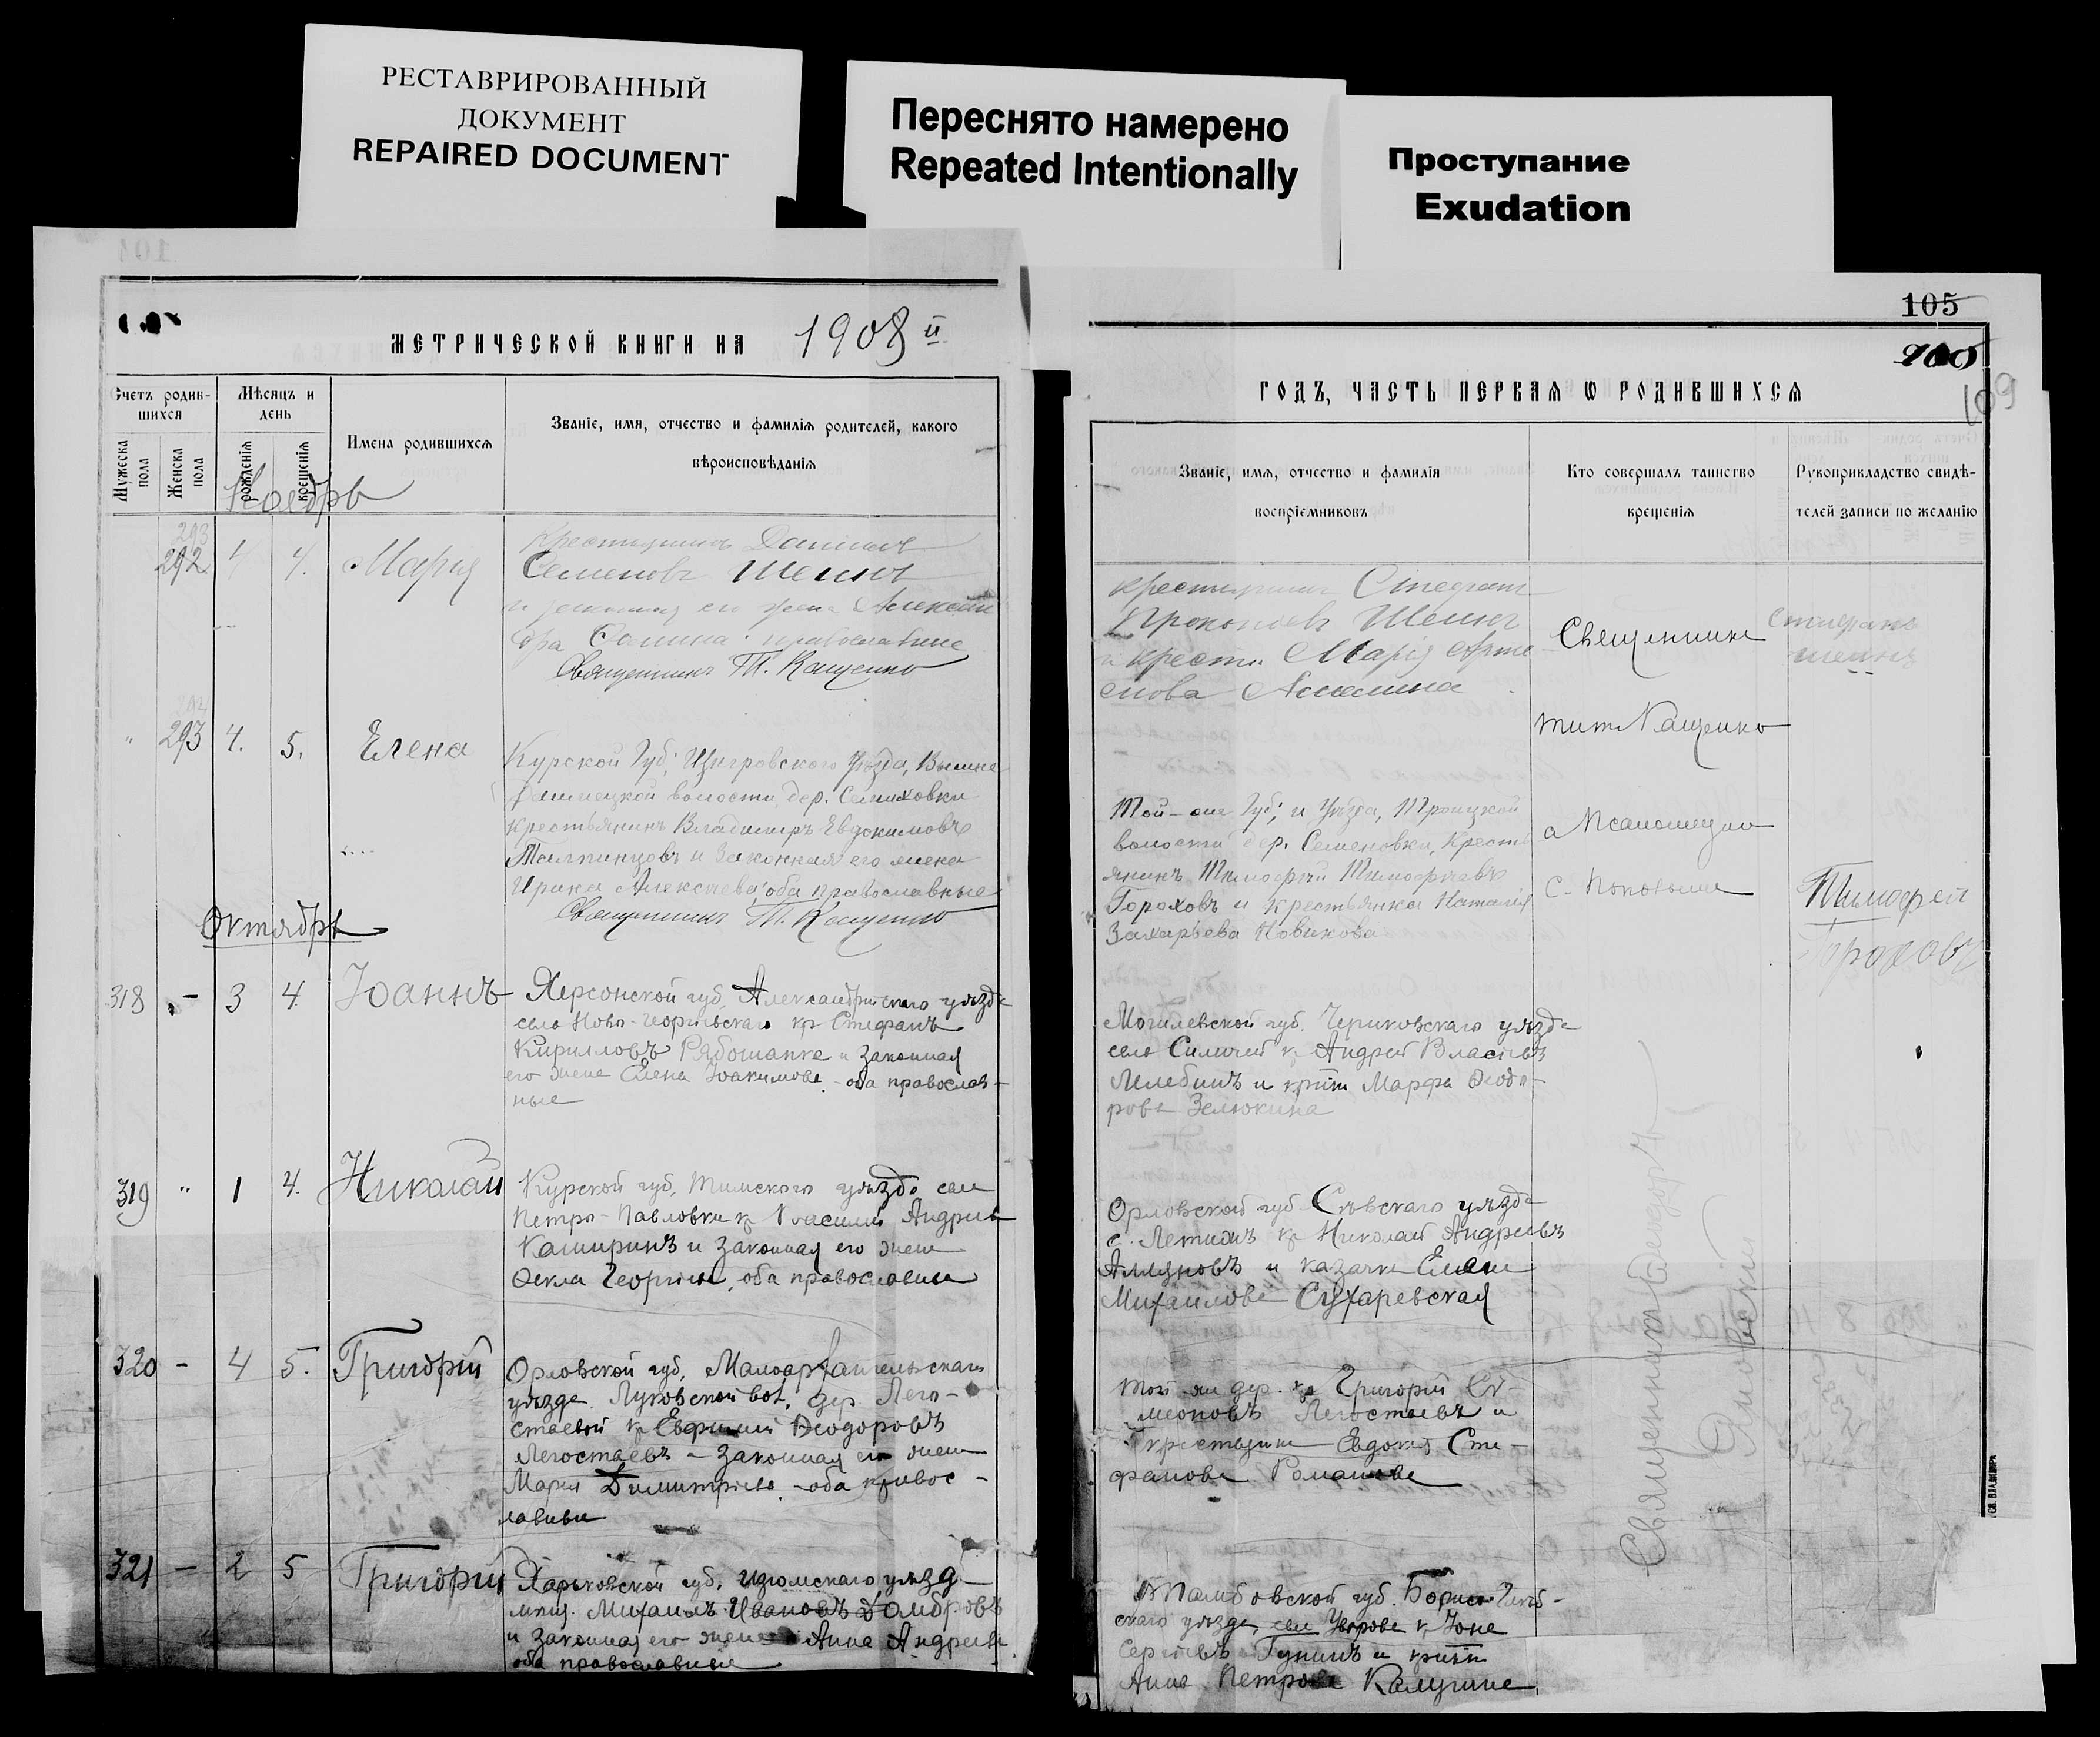 РЕСТАВРИРОВАННЫЙ
ДОКУМЕНТ
REPAIRED DOCUMENT
Переснято намерено
Repeated Intentionally
Проступание
Exudation
МЕТРИЧЕСКОЙ КНИГИ НА 1908 й
Счетъ родив-
шихся
Мѣсяцъ и
день
Мужеска
пола
Женска
пола
рожденія
крещенія
Имена родившихся
Званіе, имя, отчество и фамилія родителей, какого
вѣроисповѣданія
Ноябрь
293
292 4 4. Марія
Крестьянинъ Даниилъ
Семеновъ Шеинъ
и законная его жена Алексан
дра православные
Священникъ Т. Кащенко
" 293 4. 5. Елена
Курской Губ; Щигровского Уѣзда,
волости, дер. Семиховки
Крестьянинъ Владимиръ Евдокимовъ
и Законная его жена
Ирина Алексѣева, оба православные
Священникъ Т. Кащенко
Октябрь
318 - 3 4 Іоаннъ
Херсонской губ. Александрійскаго уѣзда
села Ново-Георгіевскаго кр Стефанъ
Кирилловъ Рябошапка и законная
его жена Елена Іоакимова - оба православ-
ные
319 " 1 4. Николай
Курской губ. Тимского уѣзда села
Петро-Павловки кр Василій Андреевъ
Каширинъ и законная его жена
Ѳекла Георгіева, оба православные
320 - 4 5. Григорій
Орловской губ. Малоархангельскаго
уѣзда Луковской вол. дер Лего-
стаевой кр Евфимій Ѳеодоровъ
Легостаевъ - законная его жена
Марія Димитріева - оба правос-
лавные
321 - 2 5 Григорій
Харьковской губ. Изюмскаго уѣзд
мѣщ. Михаилъ Ивановъ Домбровъ
и законная его жена Анна Андреева
оба православные
105
100
109
ГОДЪ, ЧАСТЬ ПЕРВАЯ Ѡ РОДИВШИХСЯ
Званіе, имя, отчество и фамилія
воспріемниковъ
Кто совершалъ таинство
крещенія
Рукоприкладство свидѣ-
телей записи по желанію
крестьянинъ Стефанъ
Прокопіевъ Шеинъ
и крест. Марія Арте
мова
Священникъ
Титъ Кащенко
съ Псаломщикомъ
С. Поповымъ
Стефанъ
Шеинъ
Той-же Губ; и Уѣзда, Троицкой
волости дер. Семеновки, Кресть
янинъ Тимофѣй Тимофѣевъ
Гороховъ и крестьянка Наталія
Захарьева Новикова
Тимофей
Гороховъ
Могилевской губ. Чериковскаго уѣзда
села Силичей кр Андрей Власіевъ
Лелебинъ и кр-ка Марфа Ѳеодо-
рова Зелюкина
Орловской губ Сѣвскаго уѣзда
с. кр Николай Андреевъ
и казачка Елена
Михаилова Сухаревская
Той-же дер. кр Григорій Си-
меоновъ Легостаевъ и
крестьянка Евдокія Сте-
фанова Романова
Тамбовской губ. Борисоглѣб-
скаго уѣзда, села Уварова кр Іона
Сергіевъ Гунинъ и кр-ка
Анна Петрова Калугина
Священникъ Ѳедоръ
СВ. ВЛАДИМІРА